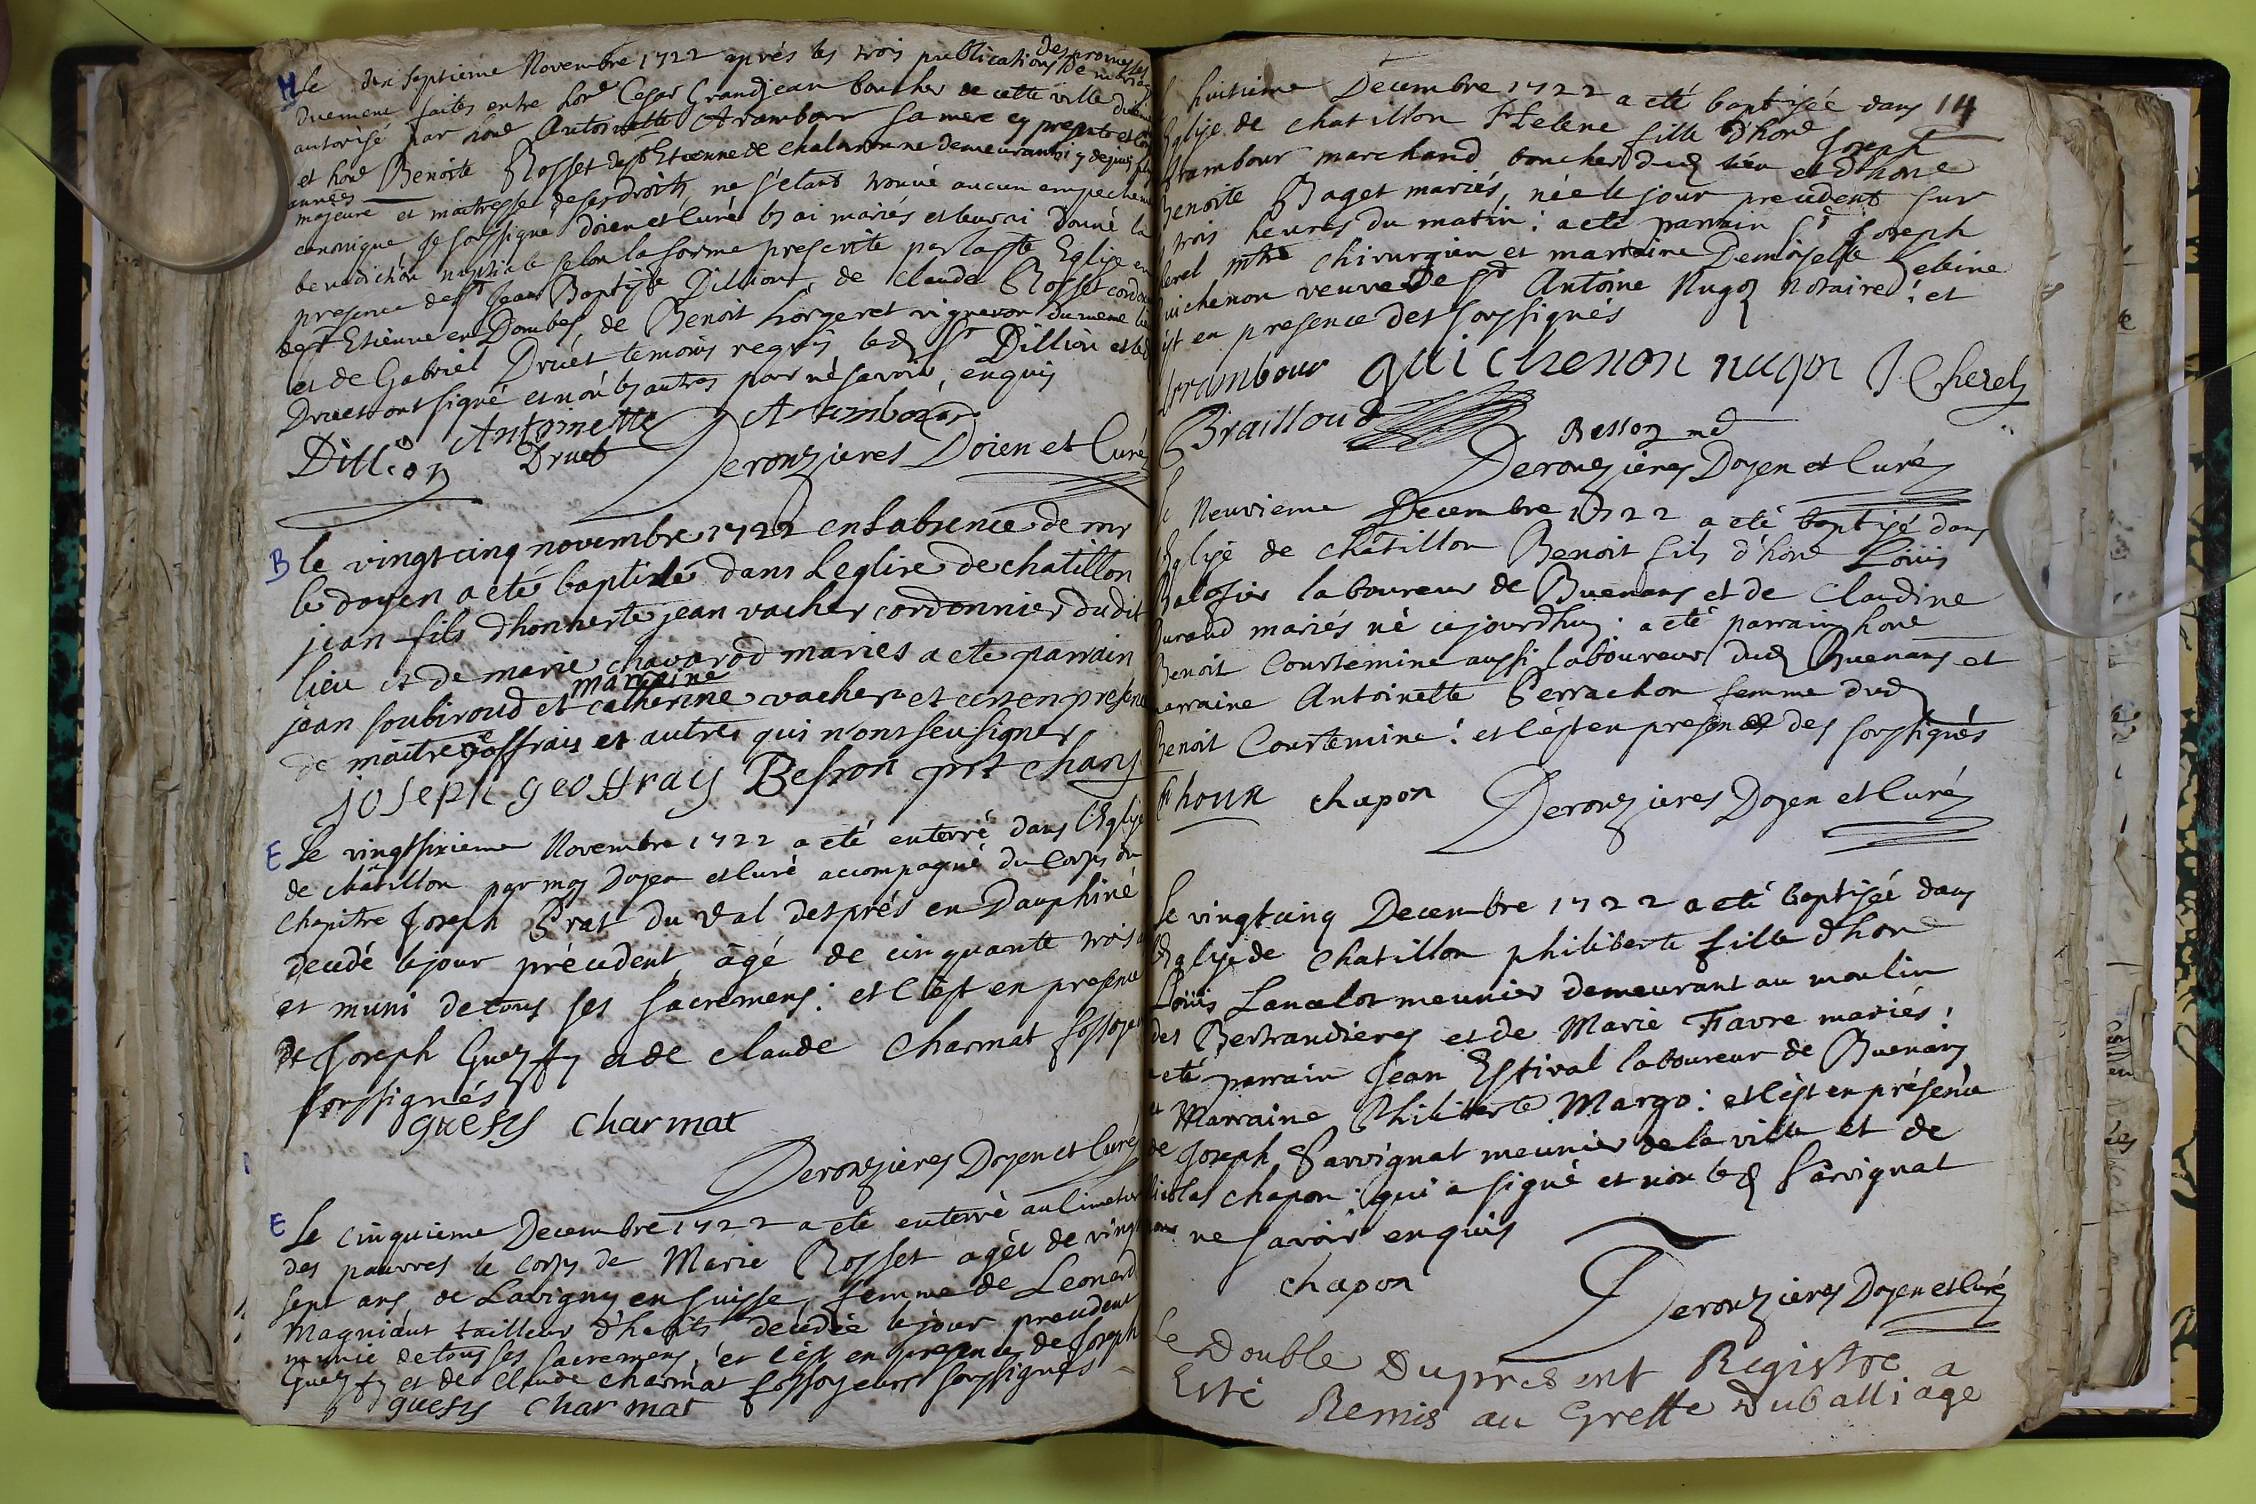 M Le dix septieme Novembre 1722 aprés les trois publications des promesses de mariage
duement faites entre honê Cesar Grandjean boucher de cette ville duement
autorisé par honê Antoinette Arambour sa mere cy presente et
et honê Benoite Rosset de st Etienne de chalaronne demeurant icy depuis
années
majeure et maitresse de ses droits, ne s'étant trouvé aucun empechement
canonique Je soussigné doien et Curé les ai mariés et leur ai donné la
benediction nuptiale selon la forme prescrite par la ste Eglise en
presence de sr Jean Baptiste Dillion, de Claude Rosset
de st Etienne en Dombes, de Benoit Lorgeret vigneron du meme lieu
et de Gabriel Druet temoins requis led sr Dillion et led
Druet ont signé et non les autres pour ne savoir, enquis
Antoinette Arambour
Dillion Druet Deronzieres Doien et Curé
B le vingt cinq novembre 1722 en labsence de mr
le doyen a eté baptisé dans Leglise de chatillon
jean fils dhonneste jean vacher cordonnier dudit
lieu et de marie chavarod mariés a ete parrain
marraine
jean soubiroud et catherine vacher et cest en presence
de maitre geoffrais et autres qui n'ont seu signer
joseph geoffray Besson prt chan
E Le vingtsixieme Novembre 1722 a eté enterré dans l'Eglise
de châtillon par moy Doyen et Curé accompagné du Corps du
Chapitre Joseph Prat du val després en Dauphiné
decedé le jour précedent âgé de cinquante trois
et muni de tous ses sacremens: et c'est en presence
de Joseph Guezsy et de claude Charmat fossoyeurs
soussignés
guesy charmat
Deronzieres Doyen et Curé
E Le cinquieme Decembre 1722 a eté enterré au Cimetiere
des pauvres le corps de Marie Rosset agée de vingt
sept ans de Lavigny en Suisse, femme de Leonard
Magniant tailleur d'habits decedée le jour precedent
munie de tous ses sacremens, et c'est en presence de Joseph
Guezsy et de Claude Charmat fossoyeurs soussignés
guesy charmat
14
huitieme Décembre 1722 a eté baptisée dans
Eglise de chatillon Helene fille d'honê Joseph
Arambour marchand boucher dud lieu et d'honê
Benoite Baget mariés, née le jour precedent sur
trois heures du matin: a eté parrain sr Joseph
Cherel mtre chirurgien et marraine Demoiselle heleine
Guichenon veuve De sr Antoine Nugoz Notaire: et
c'est en presence des soussignés
Arrambour guichenon nugoz J Cherel
Brailloud
Besson md
Deronzieres Doyen et Curé
Le Neuvieme Decembre 1722 a eté baptisé dans
l'Eglise de châtillon Benoit fils d'honê Loüis
Balosier laboureur de Buenans et de Claudine
Durand mariés né cejourdhuy: a eté parrain honê
Benoit Courtemine aussi laboureur dud Buenans et
marraine Antoinette Perrachon femme dud
Benoit Courtemine: et c'est en presence des soussignés
chapon Deronzieres Doyen et Curé
Le vingt cinq Decembre 1722 a eté baptisée dans
l'Eglise de Chatillon philiberte fille d'hon
Loüis Lancelot meunier demeurant au moulin
des Bertrandieres et de Marie Favre mariés:
a eté parrain Jean Estival laboureur de Buenans
et Marraine Philiberte Margo: et c'est en présence
de Joseph Parvignat meunier de la ville et de
Nicolas chapon: qui a signé et non led Parvignat
pour ne savoir enquis
chapon Deronzieres Doyen et Curé
Le Double Duprésent Registre a
Esté Remis au Greffe Duballiage